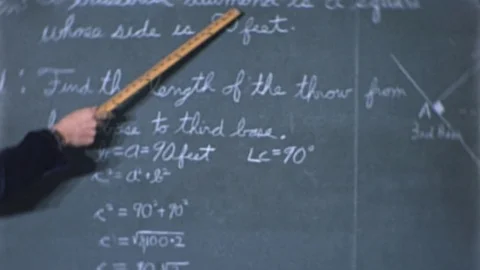 diamond is a square
whose side is feet.
: Find the length of the throw from
base to third base.
=a=90 feet ∠C=90°
c²=a²+b²
c²=90²+90²
c=√8100·2
A
3rd Base